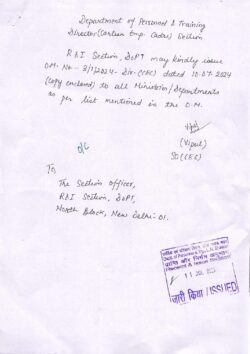 Department of Personnel & Training
Director (Canteen Emp. Cadre) Section
R&I Section, DoPT may kindly issue
O.M. No - 3/1/2024 - Dir-(CEC) dated 10.07.2024
(copy enclosed) to all Ministries/Departments
as per list mentioned in the O.M.
(Vipul)
SO(CEC)
To
The Section Officer,
R&I Section, DoPT,
North Block, New Delhi-01.
11 JUL 2024
जारी किया / ISSUED